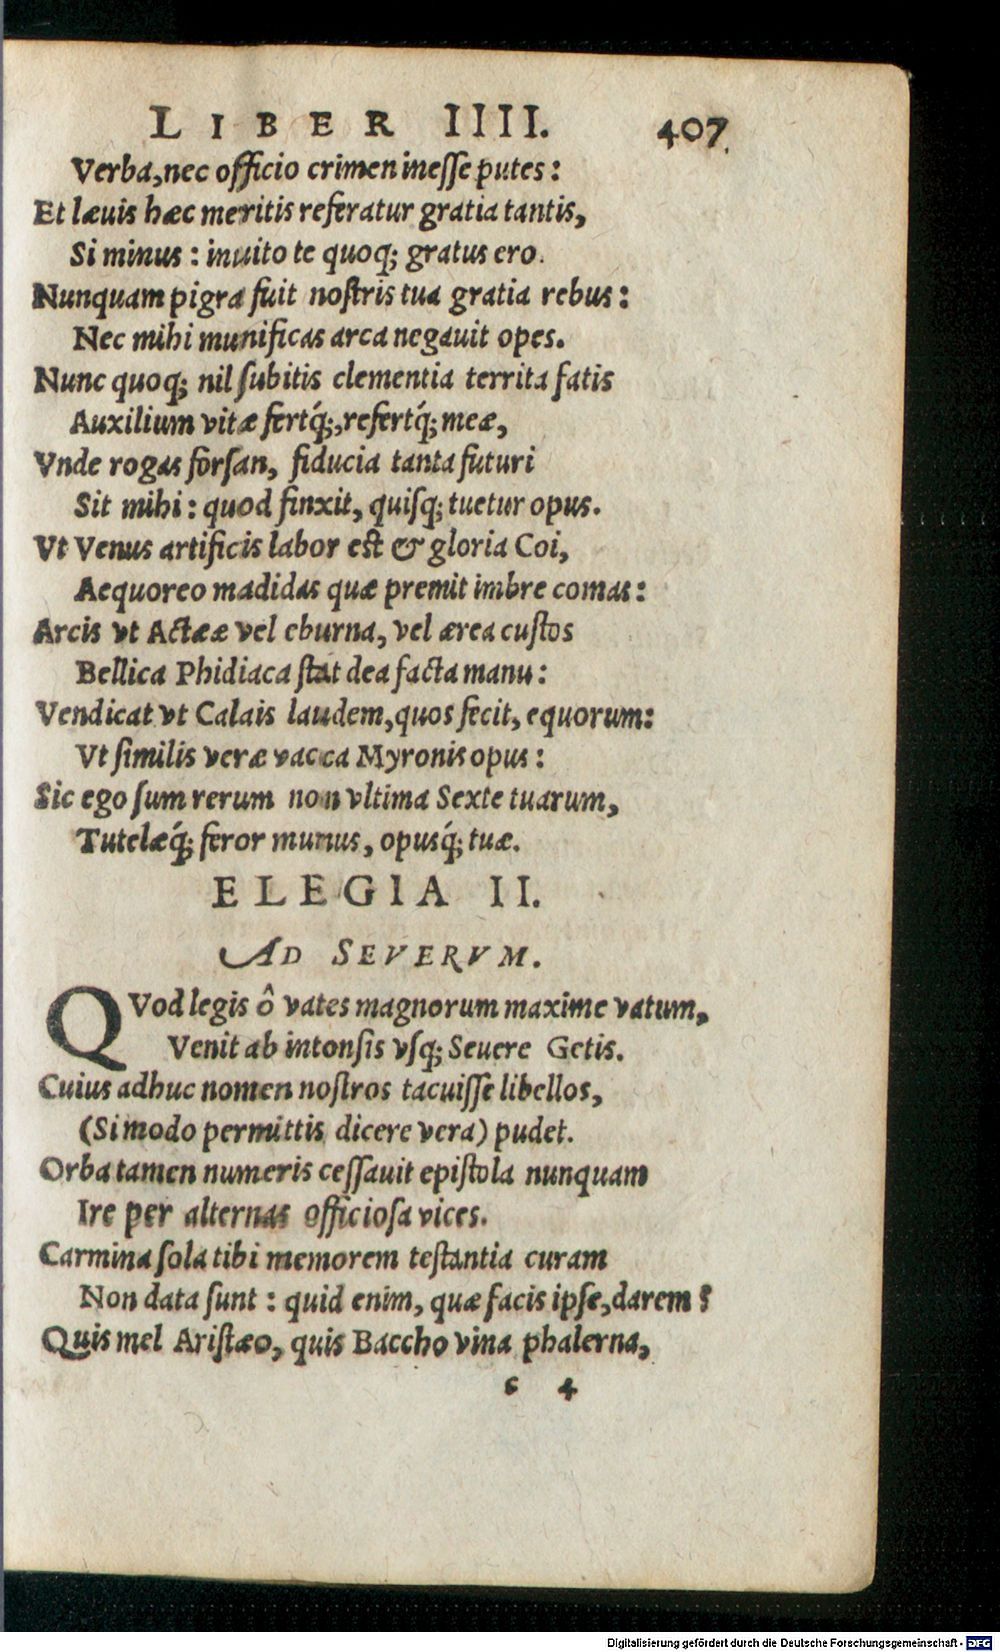 LIBER IIII. 407
Verba, nec officio crimen inesse putes:
Et læuis hæc meritis referatur gratia tantis,
Si minus: inuito te quoq; gratus ero.
Nunquam pigra fuit nostris tua gratia rebus:
Nec mihi munificas arca negauit opes.
Nunc quoq; nil subitis clementia territa fatis
Auxilium vitæ fertq́;, refertq́; meæ,
Vnde rogas forsan, fiducia tanta futuri
Sit mihi: quod finxit, quisq; tuetur opus.
Vt Venus artificis labor est & gloria Coi,
Aequoreo madidas quæ premit imbre comas:
Arcis vt Actææ vel eburna, vel ærea custos
Bellica Phidiaca stat dea facta manu:
Vendicat vt Calais laudem, quos fecit, equorum:
Vt similis veræ vacca Myronis opus:
Sic ego sum rerum non vltima Sexte tuarum,
Tutelæq́; feror munus, opusq́; tuæ.
ELEGIA II.
AD SEVERVM.
QVod legis ô vates magnorum maxime vatum,
Venit ab intonsis vsq; Seuere Getis.
Cuius adhuc nomen nostros tacuisse libellos,
(Si modo permittis dicere vera) pudet.
Orba tamen numeris cessauit epistola nunquam
Ire per alternas officiosa vices.
Carmina sola tibi memorem testantia curam
Non data sunt: quid enim, quæ facis ipse, darem?
Quis mel Aristæo, quis Baccho vina phalerna,
c 4
Digitalisierung gefördert durch die Deutsche Forschungsgemeinschaft - DFG